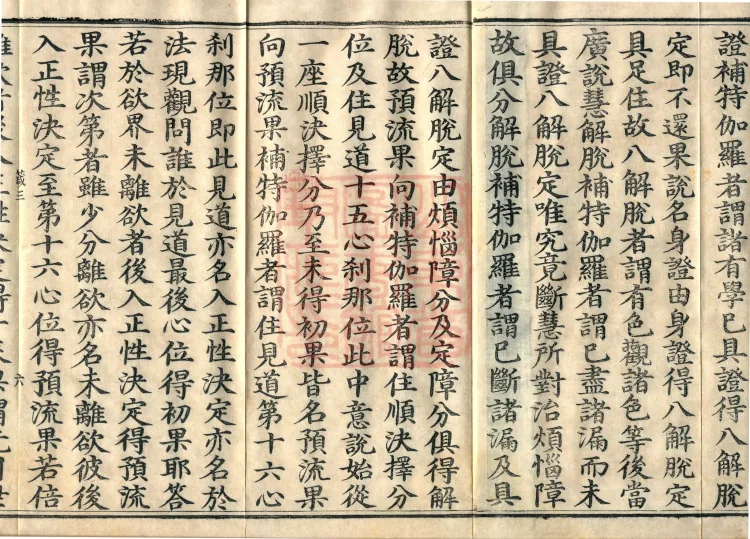 證補特伽羅者謂諸有學已具證得八解脫
定即不還果說名身證由身證得八解脫定
具足住故八解脫者謂有色觀諸色等後當
廣說慧解脫補特伽羅者謂已盡諸漏而未
具證八解脫定唯究竟斷慧所對治煩惱障
故俱分解脫補特伽羅者謂已斷諸漏及具
證八解脫定由煩惱障分及定障分俱得解
脫故預流果向補特伽羅者謂住順決擇分
位及住見道十五心剎那位此中意說始從
一座順決擇分乃至未得初果皆名預流果
向預流果補特伽羅者謂住見道第十六心
剎那位即此見道亦名入正性決定亦名於
法現觀問誰於見道最後心位得初果耶答
若於欲界未離欲者後入正性決定得預流
果謂次第者雖少分離欲亦名未離欲彼後
入正性決定至第十六心位得預流果若倍
三 六